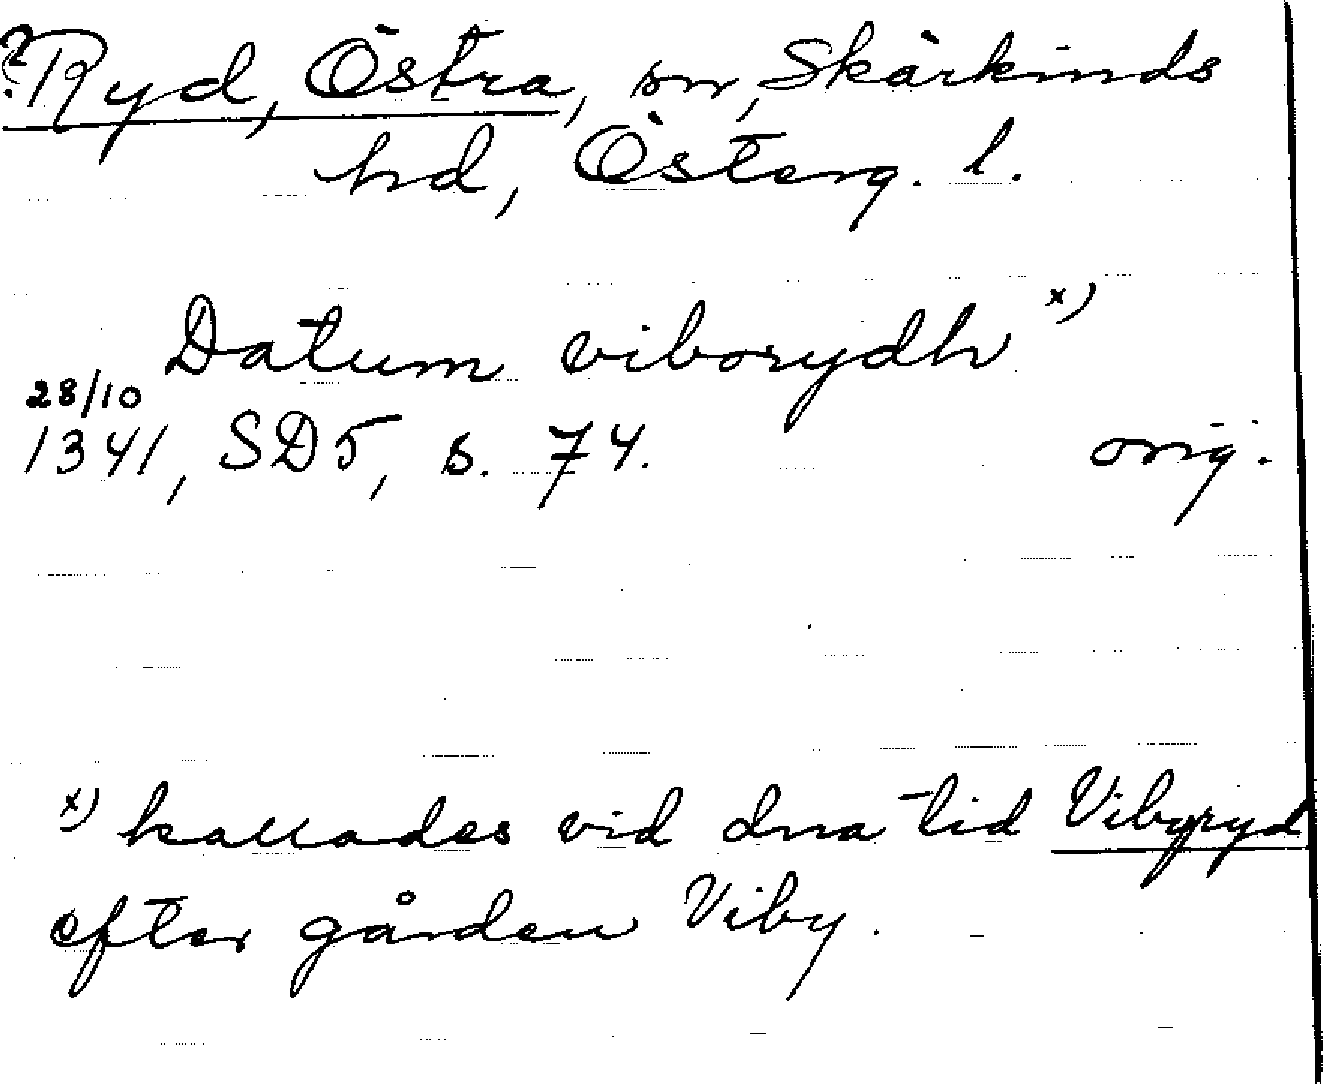 ?Ryd, Östra, sn, Skärkinds
hd, Österg. l.
Datum viborydh x)
28/10
1341, SD5, s. 74. orig.
x) kallades vid dna tid Vibyryd
efter gården Viby.